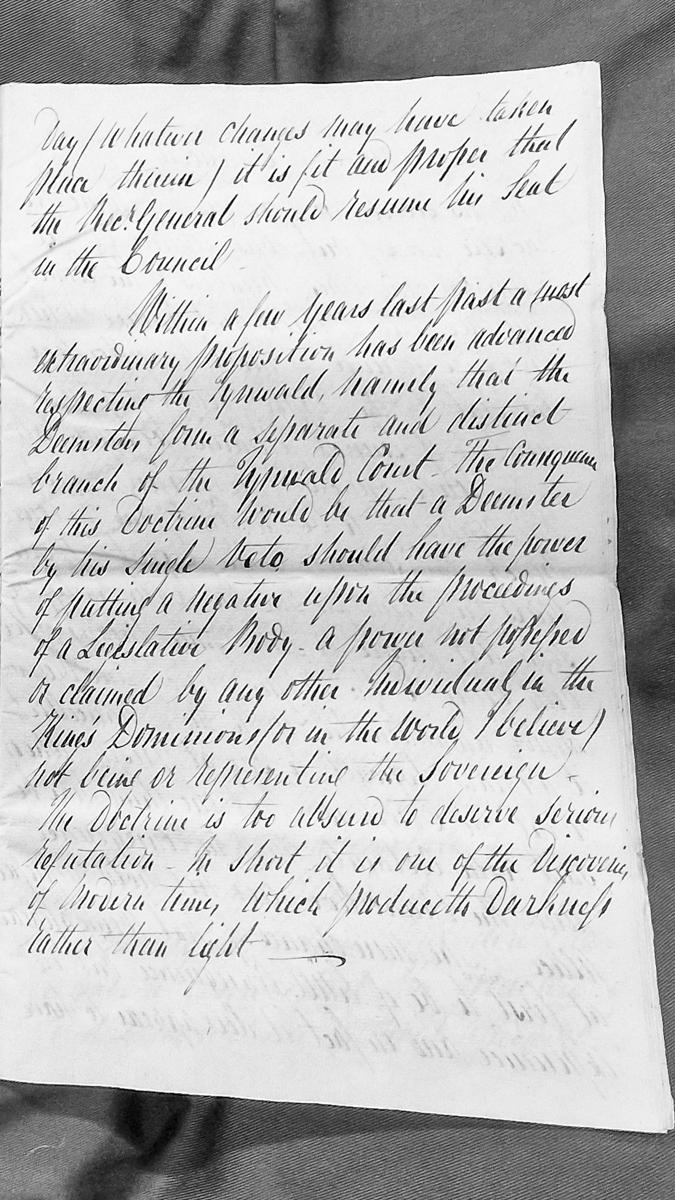 Day (Whatever changes may have taken
place therein) it is fit and proper that
the Recr. General should resume his Seat
in the Council
Within a few years last past a most
extraordinary proposition has been advanced
respecting the Tynwald, namely that the
Deemsters form a separate and distinct
branch of the Tynwald Court - The Consequence
of this Doctrine would be that a Deemster
by his single Veto, should have the power
of putting a negative upon the proceedings
of a Legislative Body - a power not possessed
or claimed by any other Individual, in the
King's Dominions (or in the World, I believe)
not being or representing the Sovereign -
The Doctrine is too absurd to deserve serious
refutation - In short it is one of the Discoveries
of Modern times, Which produceth Darkness
rather than light —